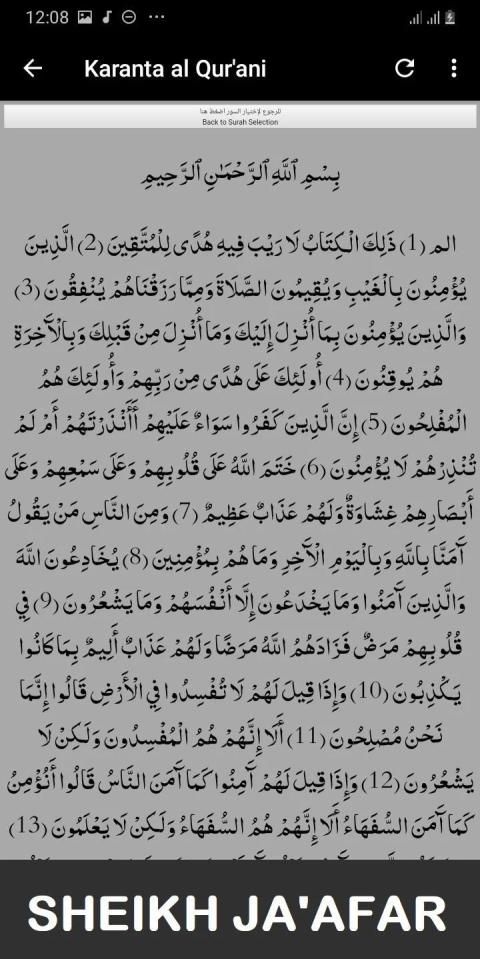 12:08
Karanta al Qur'ani
للرجوع لإختيار السور اضغط هنا
Back to Surah Selection
بِسْمِ ٱللَّهِ ٱلرَّحْمَٰنِ ٱلرَّحِيمِ
الم (1) ذَلِكَ الْكِتَابُ لَا رَيْبَ فِيهِ هُدًى لِلْمُتَّقِينَ (2) الَّذِينَ
يُؤْمِنُونَ بِالْغَيْبِ وَيُقِيمُونَ الصَّلَاةَ وَمِمَّا رَزَقْنَاهُمْ يُنْفِقُونَ (3)
وَالَّذِينَ يُؤْمِنُونَ بِمَا أُنْزِلَ إِلَيْكَ وَمَا أُنْزِلَ مِنْ قَبْلِكَ وَبِالْآخِرَةِ
هُمْ يُوقِنُونَ (4) أُولَئِكَ عَلَى هُدًى مِنْ رَبِّهِمْ وَأُولَئِكَ هُمُ
الْمُفْلِحُونَ (5) إِنَّ الَّذِينَ كَفَرُوا سَوَاءٌ عَلَيْهِمْ أَأَنْذَرْتَهُمْ أَمْ لَمْ
تُنْذِرْهُمْ لَا يُؤْمِنُونَ (6) خَتَمَ اللَّهُ عَلَى قُلُوبِهِمْ وَعَلَى سَمْعِهِمْ وَعَلَى
أَبْصَارِهِمْ غِشَاوَةٌ وَلَهُمْ عَذَابٌ عَظِيمٌ (7) وَمِنَ النَّاسِ مَنْ يَقُولُ
آمَنَّا بِاللَّهِ وَبِالْيَوْمِ الْآخِرِ وَمَا هُمْ بِمُؤْمِنِينَ (8) يُخَادِعُونَ اللَّهَ
وَالَّذِينَ آمَنُوا وَمَا يَخْدَعُونَ إِلَّا أَنْفُسَهُمْ وَمَا يَشْعُرُونَ (9) فِي
قُلُوبِهِمْ مَرَضٌ فَزَادَهُمُ اللَّهُ مَرَضًا وَلَهُمْ عَذَابٌ أَلِيمٌ بِمَا كَانُوا
يَكْذِبُونَ (10) وَإِذَا قِيلَ لَهُمْ لَا تُفْسِدُوا فِي الْأَرْضِ قَالُوا إِنَّمَا
نَحْنُ مُصْلِحُونَ (11) أَلَا إِنَّهُمْ هُمُ الْمُفْسِدُونَ وَلَكِنْ لَا
يَشْعُرُونَ (12) وَإِذَا قِيلَ لَهُمْ آمِنُوا كَمَا آمَنَ النَّاسُ قَالُوا أَنُؤْمِنُ
كَمَا آمَنَ السُّفَهَاءُ أَلَا إِنَّهُمْ هُمُ السُّفَهَاءُ وَلَكِنْ لَا يَعْلَمُونَ (13)
SHEIKH JA'AFAR